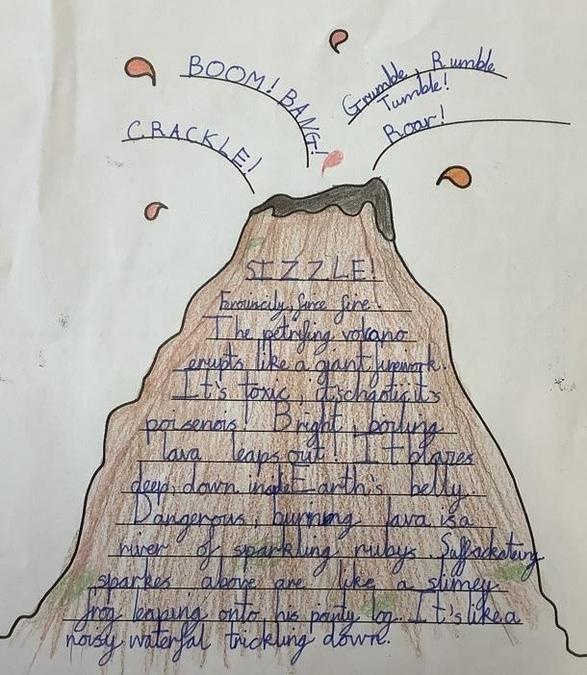 BOOM! BANG!
Grumble, Rumble
Tumble!
CRACKLE!
Roar!
SIZZLE!
fire.
The petrifing volcano
erupts like a giant firework.
It's toxic, it'schaotic,it's
poisenois! Bright, boiling
lava leaps out! It blazes
deep down inside Earth's belly.
Dangerous, burning lava is a
river of sparkling rubys. Saffackateing
sparkes above are like a slimey
frog leaping onto his pointy log. It's like a
noisy waterfal trickling down.